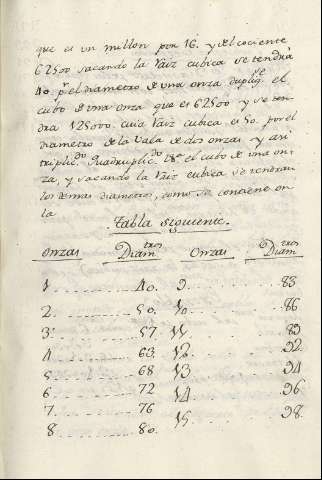 que es un millon por 16. y del cociente
62500 sacando la raiz cubica se tendrà
40. pr. el diametro de una onza dupliqse. el
cubo de una onza que es 62500 y se ten-
drà 125000. cuia raiz cubica es 50. por el
diametro de la vala de dos onzas y asi
triplicdo. quadruplicdo. &a. el cubo de una on-
za, y sacando la raiz cubica se tendran
los demas diametros, como se contiene en
la
Tabla siguiente.
Onzas Diamtros Onzas Diamtros
1 40. 9 83
2. 50. 10. 86
3. 57 11 89
4 63. 12 92.
5 68 13 94
6 72 14 96
7. 76 15 98.
8. 80.